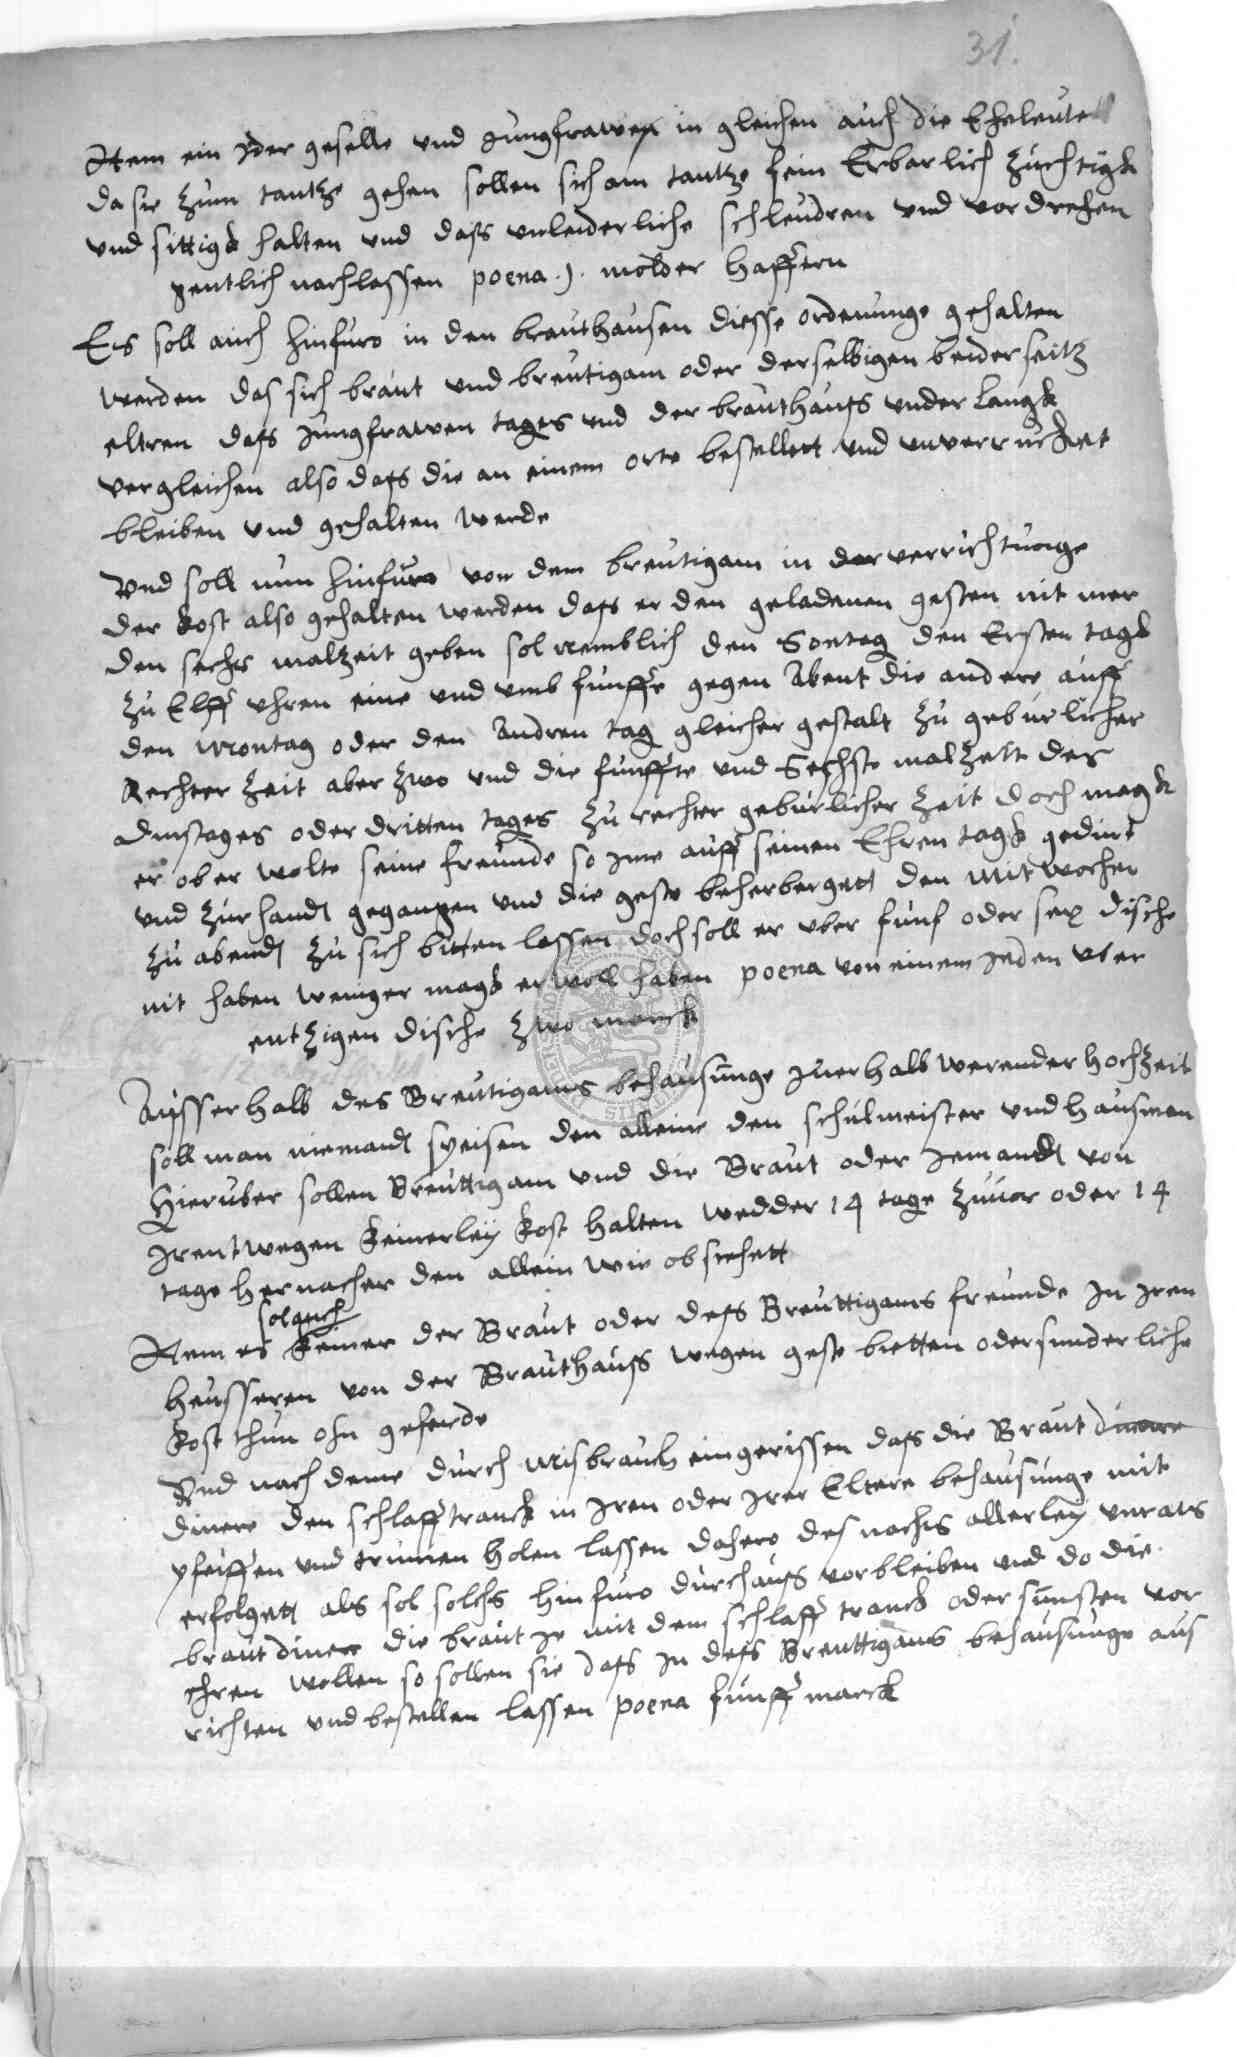 31.
Item ein jder geselle vnd Jungfrawen in gleichen auch die Eheleute
da sie zum tantze gehen sollen sich am tantze fein Erbarlich züchtigk
vnd sittigk halten vnd dass vnleiderliche schleudren vnd vordrehen
gentlich nachlassen poena .j. molder haffern
Es soll auch hinfuro in den brauthausen diesse ordenunge gehalten
werden das sich braut vnd breutigam oder derselbigen beiderseitz
eltren dass Jungfrawen tages vnd der brauthaus vnder langk
vergleichen also dass die an einem orte bestellett vnd vnverrücket
bleiben vnd gehalten werde
Vnd soll nun hinfuro von dem breutigam in der verrichtunge
der kost also gehalten werden dass er den geladenen gesten nit mer
den sechs malzeit geben sol nemblich den Sontag den Ersten tagk
zu Elff vhren eine vnd vmb funffe gegen Abent die andere auff
den Montag oder den Andren tag gleicher gestalt zu geburlicher
Rechter zeit aber zwo vnd die funffte vnd Sechste malzeit des
dinstages oder dritten tages zu rechter geburlicher zeit doch magk
er ob er wolte seine freunde so ime auff seinen Ehren tagk gedint
vnd zur handt gegangen vnd die geste beherbergett den Mitwochen
zu abendt zu sich bitten lassen doch soll er vber funf oder sex dische
nit haben weniger magk er woll haben poena von einem jeden vber
entzigen dische zwo marck
Ausserhalb des Breutigams behausunge jnerhalb werender hochzeit
soll man niemandt speisen den alleine den schulmeister vnd hausman
Hieruber sollen Breuttigam vnd die Braut oder jemandt von
jrentwegen keinerley kost halten wedder 14 tage zuuor oder 14
tage hernacher den allein wie obstehett
solauch
Item es keiner der Braut oder dess Breuttigams freunde in jren
heusseren von der Brauthauss wegen geste bietten oder sunderliche
kost thun ohn geferde
Vnd nach deme durch misbrauch eingerissen dass die Braut dinere
dinere den schlafftranck in jren oder jrer Eltere behausunge mit
pfeiffen vnd trumen holen lassen dahero des nachts allerley vnrats
erfolgett als sol solchs hinfuro durchauss vorbleiben vnd do die
braut diner die braut je mit dem schlaff tranck oder sunsten vor
ehren wollen so sollen sie dass in dess Breuttigams behausunge aus
richten vnd bestellen lassen poena funff marck